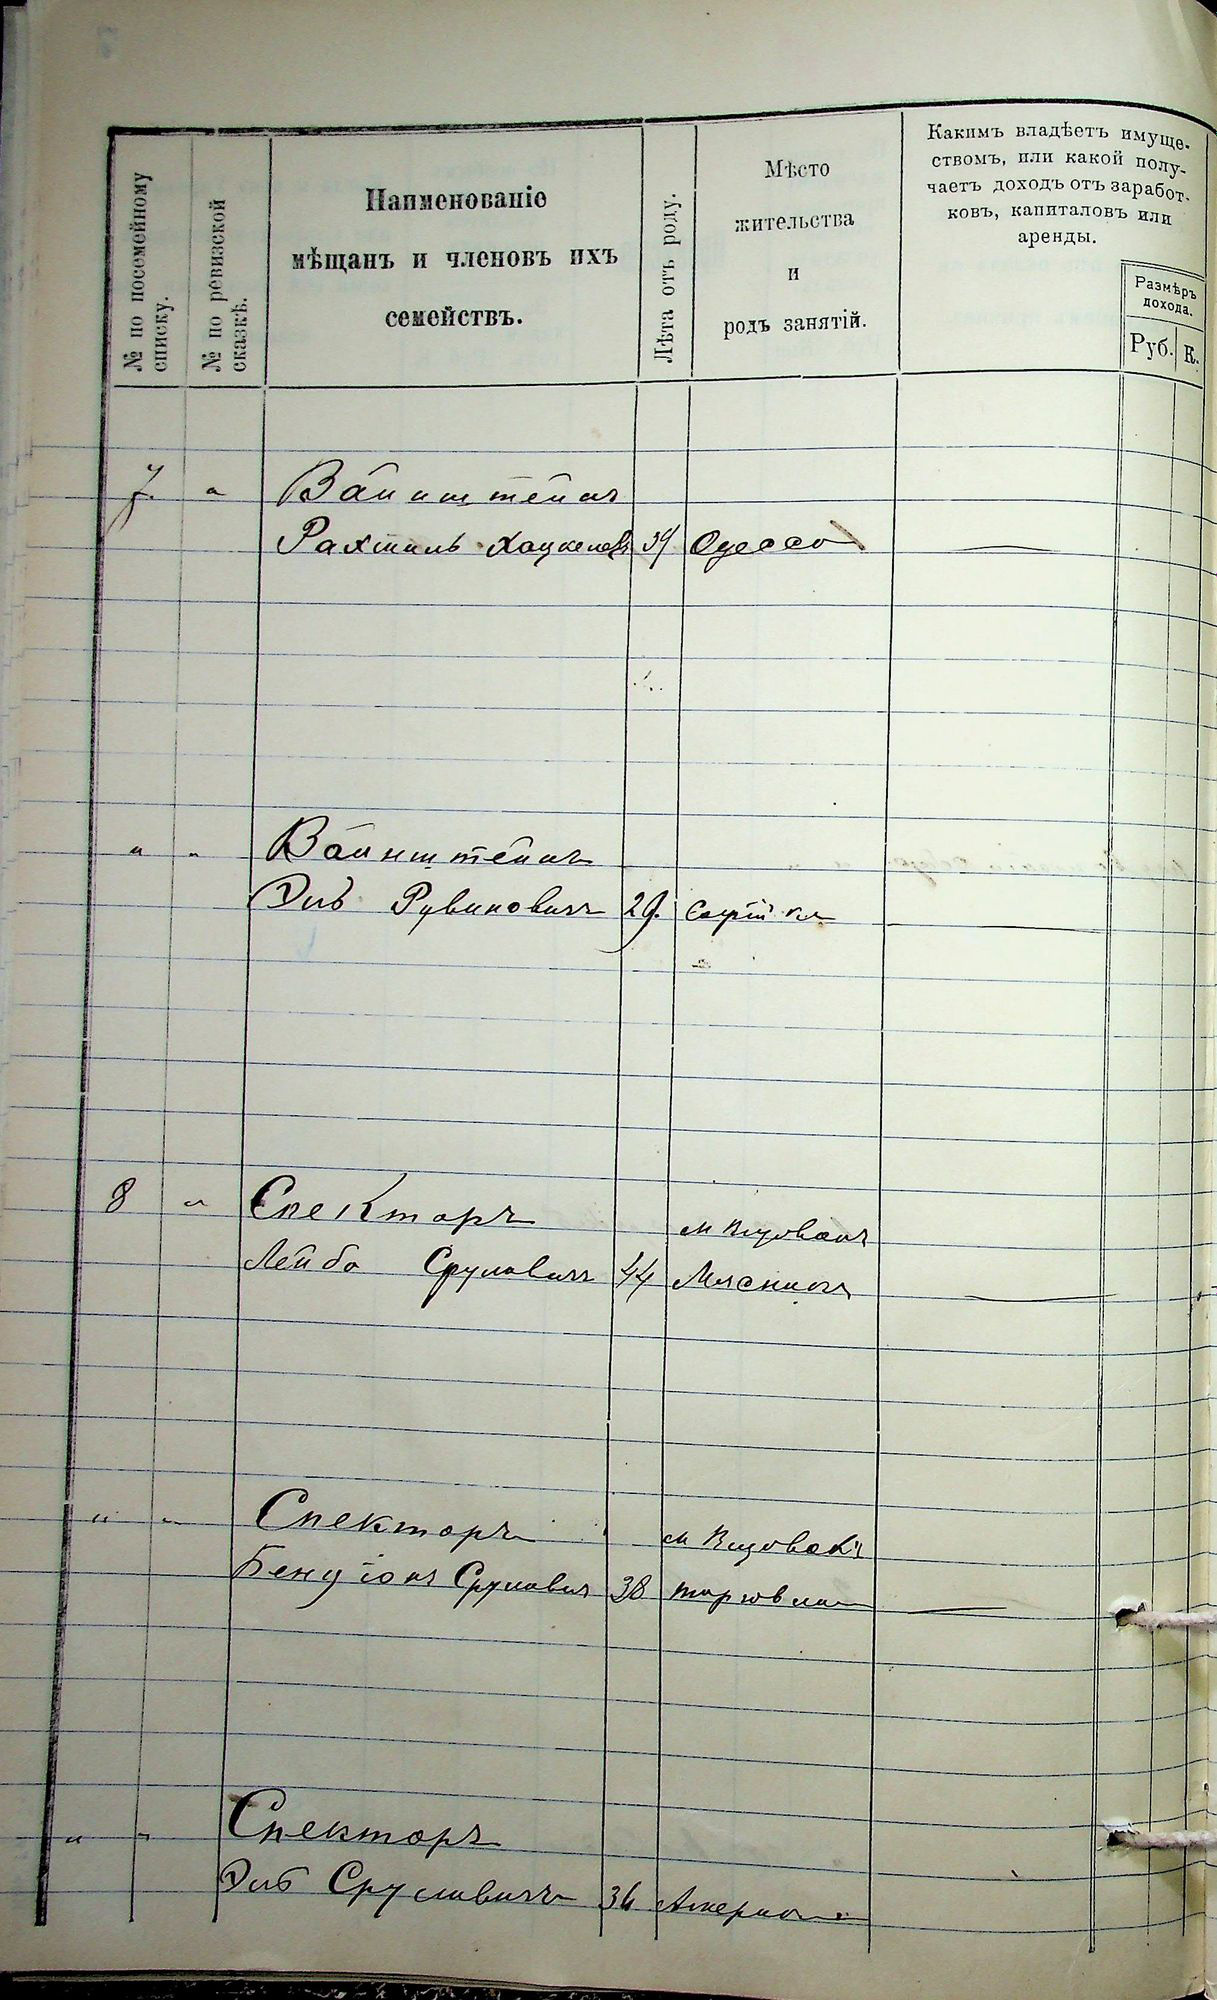 № по посемейному
списку.
№ по ревизской
сказкѣ.
Наименованіе
мѣщанъ и членовъ ихъ
семействъ.
Лѣта отъ роду.
Мѣсто
жительства
и
родъ занятій.
Какимъ владѣетъ имуще-
ствомъ, или какой полу-
чаетъ доходъ отъ заработ-
ковъ, капиталовъ или
аренды.
Размѣръ
дохода.
Руб. К.
7. " Вайнштейнъ
Рахмиль Хацкелевъ 39 Одесса
" " Вайнштейнъ
Дувъ Рувиновичъ 29.
8 " Спекторъ
Лейба Сруловичъ 44 Мясникъ
" " Спекторъ
Бенціонъ Срулович 38 торговля
" " Спекторъ
Дувъ Сруловичъ 36 Америка